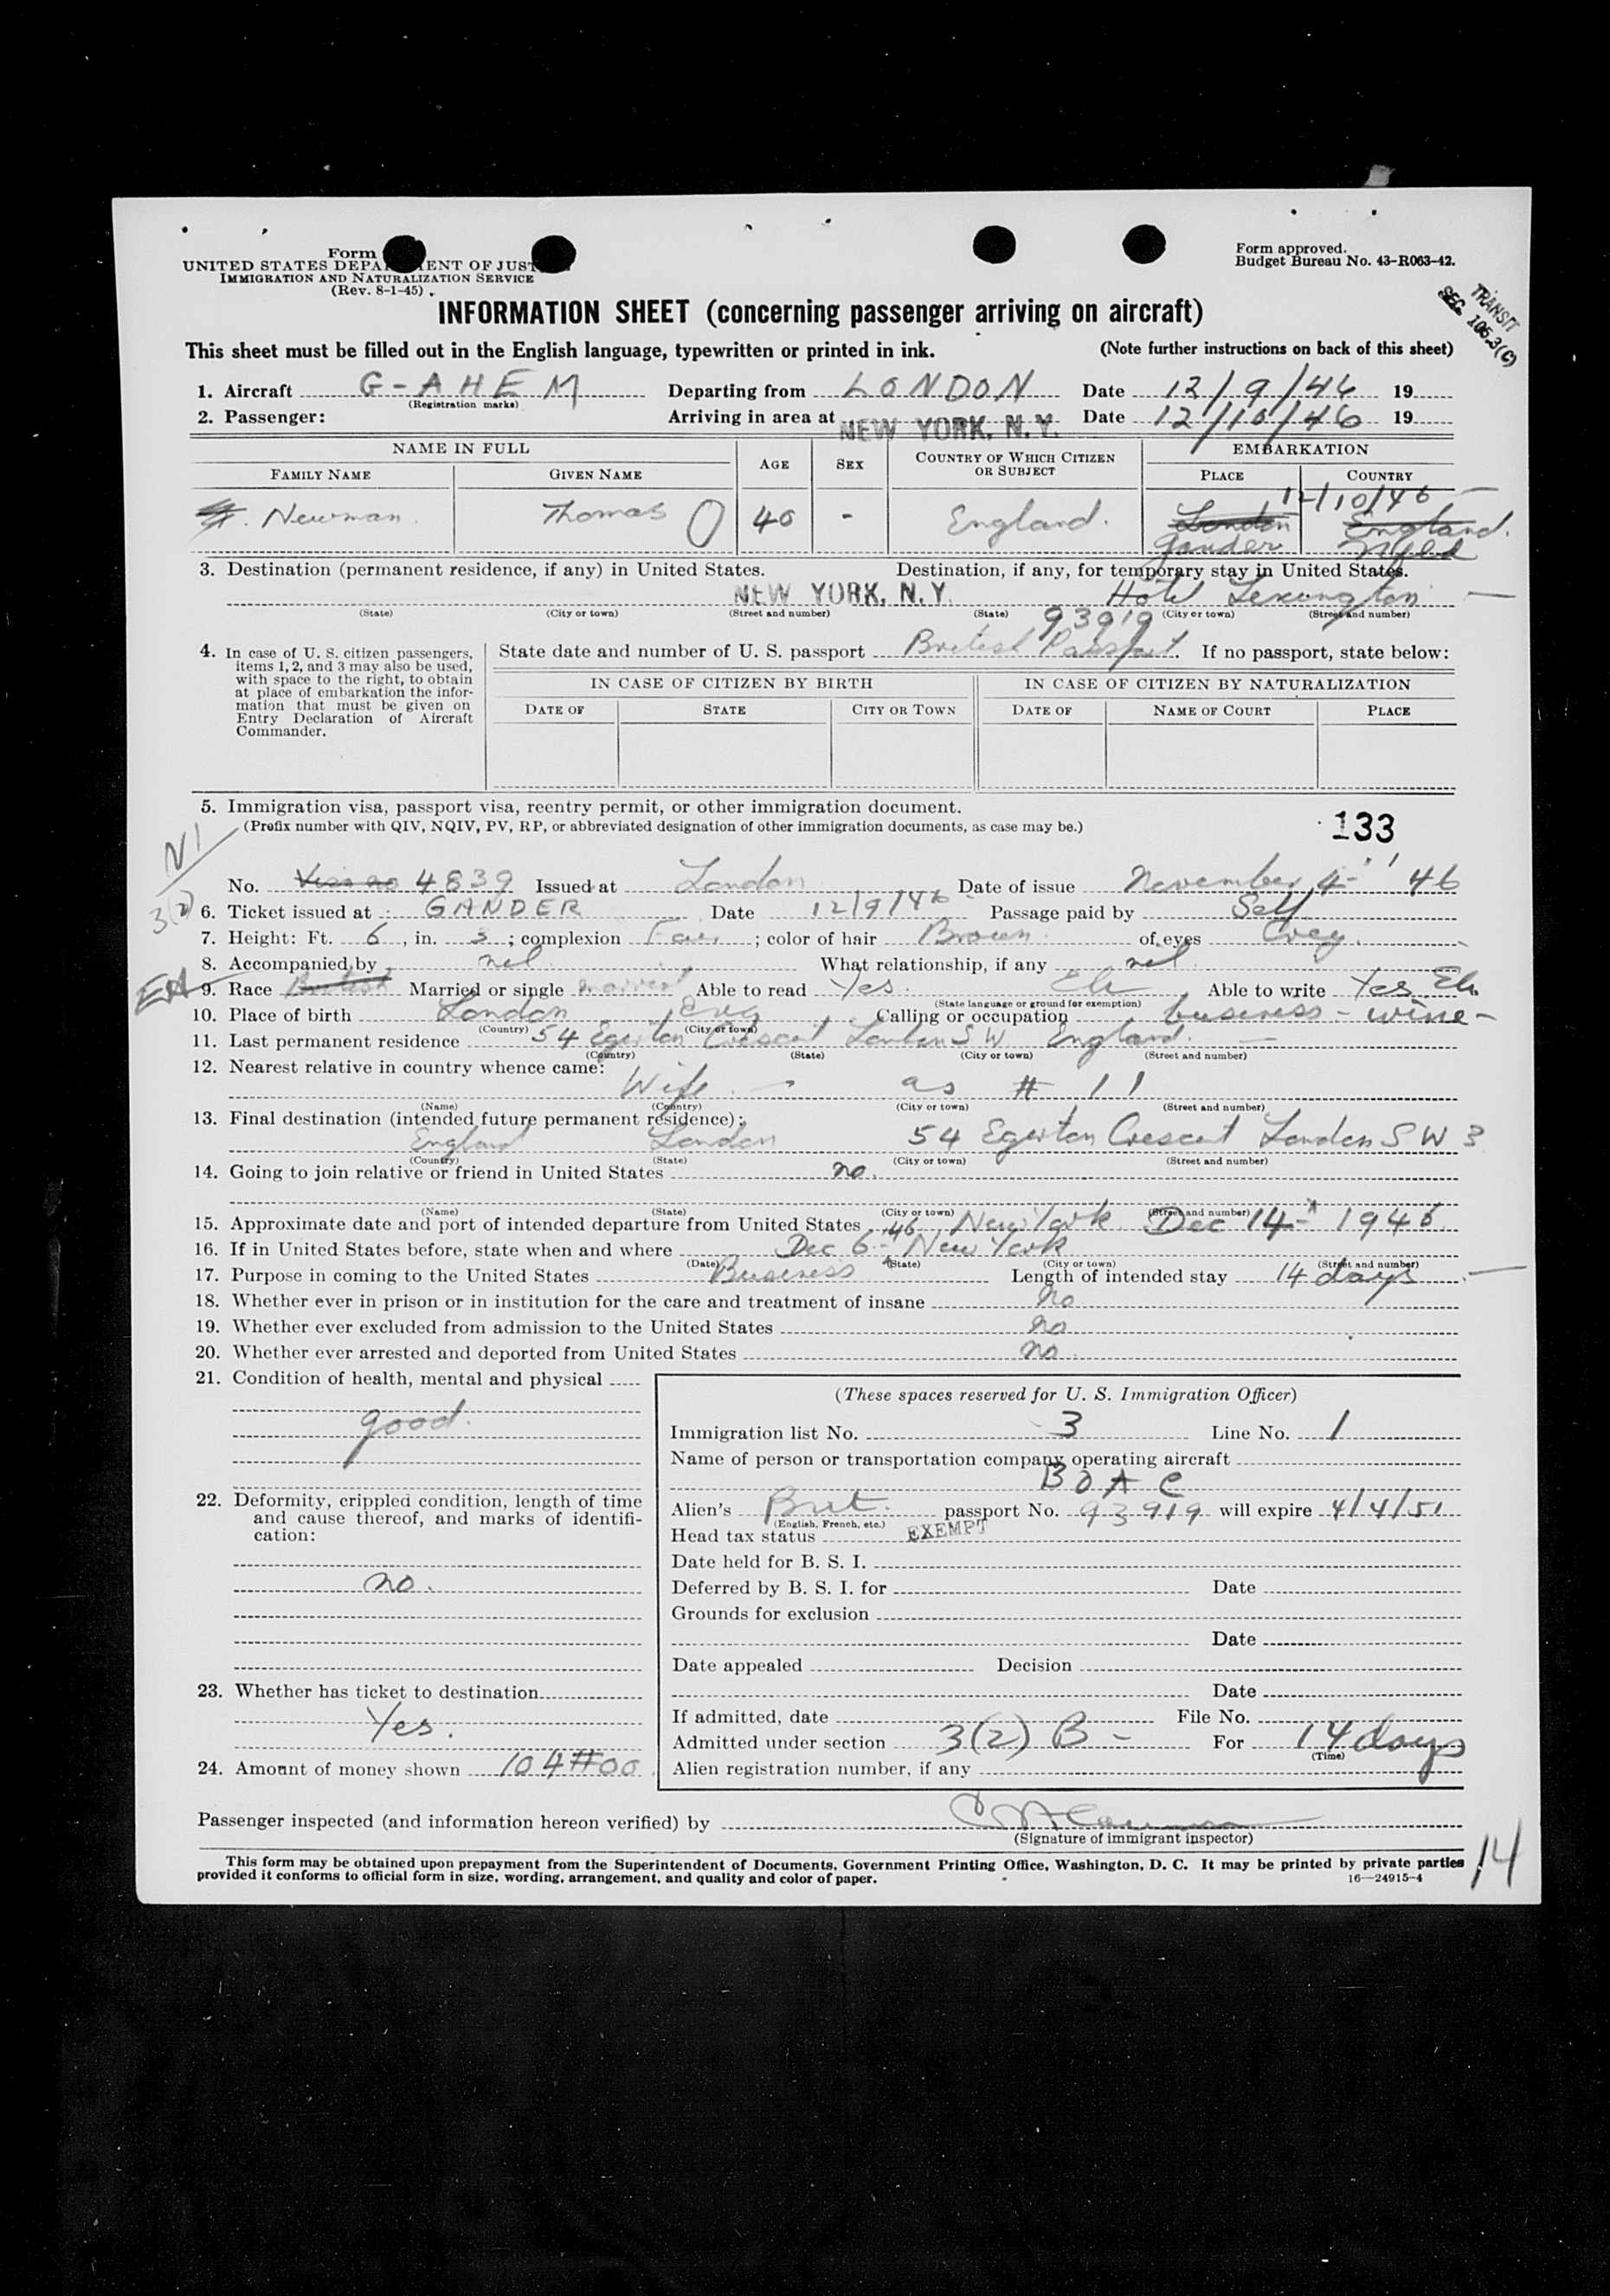 Form
UNITED STATES DEPA ENT OF JUST
IMMIGRATION AND NATURALIZATION SERVICE
(Rev. 8-1-45)
Form approved.
Budget Bureau No. 43-R063-42.
TRANSIT
SEC. 105.3(C)
INFORMATION SHEET (concerning passenger arriving on aircraft)
This sheet must be filled out in the English language, typewritten or printed in ink. (Note further instructions on back of this sheet)
1. Aircraft G-AHEM Departing from LONDON Date 12/9/46 19
(Registration marks)
2. Passenger: Arriving in area at NEW YORK, N.Y. Date 12/10/46 19
NAME IN FULL AGE SEX COUNTRY OF WHICH CITIZEN OR SUBJECT EMBARKATION
FAMILY NAME GIVEN NAME PLACE COUNTRY
12/10/46
Newman Thomas 40 - England. London England.
Gander Nfld
3. Destination (permanent residence, if any) in United States. Destination, if any, for temporary stay in United States.
NEW YORK, N.Y. Hotel Lexington
(State) (City or town) (Street and number) (State) (City or town) (Street and number)
93919
4. In case of U. S. citizen passengers, items 1, 2, and 3 may also be used, with space to the right, to obtain at place of embarkation the information that must be given on Entry Declaration of Aircraft Commander.
State date and number of U. S. passport British Passport. If no passport, state below:
IN CASE OF CITIZEN BY BIRTH IN CASE OF CITIZEN BY NATURALIZATION
DATE OF STATE CITY OR TOWN DATE OF NAME OF COURT PLACE
5. Immigration visa, passport visa, reentry permit, or other immigration document.
(Prefix number with QIV, NQIV, PV, RP, or abbreviated designation of other immigration documents, as case may be.)
133
NI
3(2)
No. Visa no 4839 Issued at London Date of issue November 4 46
6. Ticket issued at GANDER Date 12/9/46 Passage paid by Self
7. Height: Ft. 6, in. 3; complexion Fair; color of hair Brown of eyes Grey.
8. Accompanied by nil What relationship, if any nil
9. Race British Married or single married Able to read Yes. Eh Able to write Yes Eh
(State language or ground for exemption)
10. Place of birth London Eng Calling or occupation business - wine -
(Country) (City or town)
11. Last permanent residence 54 Egerton Crescent London S W England.
(Country) (State) (City or town) (Street and number)
12. Nearest relative in country whence came:
Wife - as # 11
(Name) (Country) (City or town) (Street and number)
13. Final destination (intended future permanent residence):
England London 54 Egerton Crescent London S W 3
(Country) (State) (City or town) (Street and number)
14. Going to join relative or friend in United States no.
(Name) (State) (City or town) (Street and number)
15. Approximate date and port of intended departure from United States New York Dec 14 1946
16. If in United States before, state when and where Dec 6 46 New York
(Date) (State) (City or town) (Street and number)
17. Purpose in coming to the United States Business Length of intended stay 14 days
18. Whether ever in prison or in institution for the care and treatment of insane no
19. Whether ever excluded from admission to the United States no
20. Whether ever arrested and deported from United States no
21. Condition of health, mental and physical
good.
22. Deformity, crippled condition, length of time and cause thereof, and marks of identification:
no.
23. Whether has ticket to destination
Yes.
24. Amount of money shown 104#00
(These spaces reserved for U. S. Immigration Officer)
Immigration list No. 3 Line No. 1
Name of person or transportation company operating aircraft
BOAC
Alien's Brit. passport No. 93919 will expire 4/4/51
(English, French, etc.)
Head tax status EXEMPT
Date held for B. S. I.
Deferred by B. S. I. for Date
Grounds for exclusion
Date
Date appealed Decision
Date
If admitted, date File No.
Admitted under section 3(2) B - For 14 days
(Time)
Alien registration number, if any
Passenger inspected (and information hereon verified) by
(Signature of immigrant inspector)
This form may be obtained upon prepayment from the Superintendent of Documents, Government Printing Office, Washington, D. C. It may be printed by private parties
provided it conforms to official form in size, wording, arrangement, and quality and color of paper.
16—24915-4
14